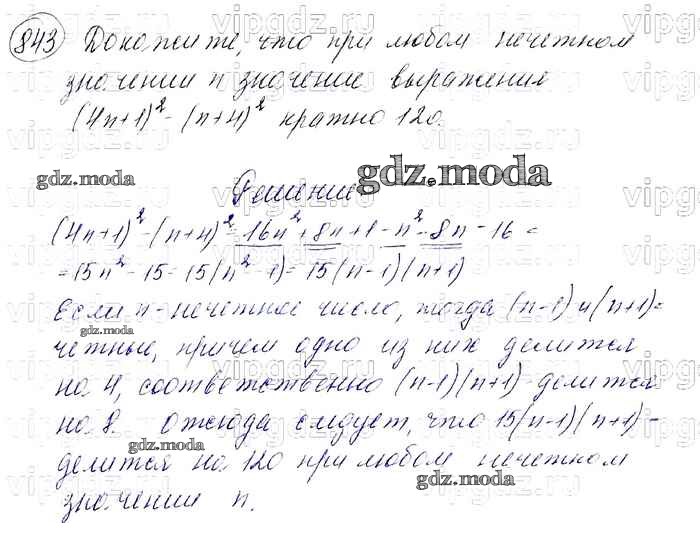 843 Докажите, что при любом нечетном
значении n значение выражения
(4n+1)² - (n+4)² кратно 120.
gdz.moda
gdz.moda
Решение
(4n+1)² - (n+4)² = 16n² + 8n + 1 - n² - 8n - 16 =
= 15n² - 15 = 15(n² - 1) = 15(n-1)(n+1)
Если n - нечетное число, тогда (n-1) и (n+1) -
gdz.moda
четные, причем одно из них делится
на 4, соответственно (n-1)(n+1) - делится
на 8. Отсюда следует, что 15(n-1)(n+1) -
gdz.moda
делится на 120 при любом нечетном
значении n.